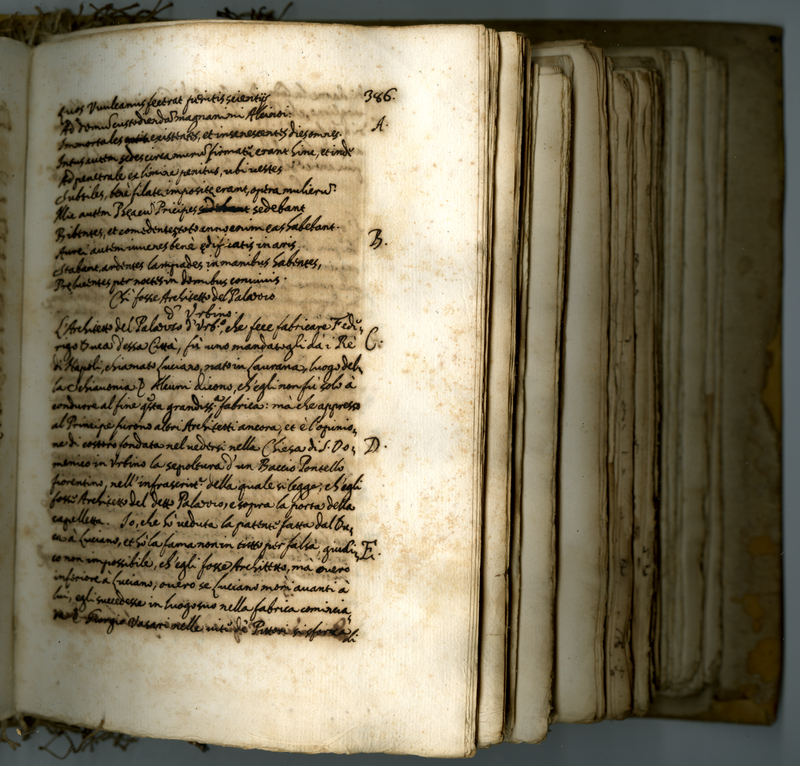 386.
quos Vulcanus fecerat peritis scientijs
Ad domũ custodiendã magnanimi Alcinoi.
A.
Immortales existentes, et insenescentes dies omnes.
Intus autem sedes circa murũ firmatę erant hinc, et inde
Ad penetrale ex limine penitus, ubi vestes
Subtiles, bene filatę impositę erant, opera mulierũ.
Illic autem Pheacũ Prīcipes sedebant sedebant
Bibentes, et comedentes toto anno enim eas habebant.
B.
Aurei autem iuvenes bene ędificatis in aris
Stabant, ardentes lampades in manibus habentes,
Prelucentes per noctes in domibus convivis.
Chi fosse Architetto del Palazzo
d'Urbino.
L'Architetto del Palazzo d'Urbº, che fece fabricare Fede-
rigo Duca d'essa Città, fù uno mandatogli da i Rè
C.
di Napoli, chiamato Luciano, nato in Laurana, luogo del-
la Schiavonia. Alcuni dicono, ch'egli non fù solo à
condurre al fine q̃sta grandissª. fabrica: mà che appresso
al Principe furono altri Architetti ancora, et è l'opinio-
ne di costoro fondata nel vedersi nella Chiesa di S. Do-
D.
menico in Urbino la sepoltura d'un Baccio Pontello
fiorentino, nell'infrascritt. della quale si legge, ch'egli
fosse Architetto del detto Palazzo, e sopra la porta della
cappelletta. Io, che hò veduta la patente fatta dal Du-
ca à Luciano, et hò la fama non in tutto per falsa, giudi-
E.
co non impossibile, ch'egli fosse Architetto, mà overo
inferiore à Luciano, overo se Luciano morì avanti à
lui, egli succedesse in luogo suo nella fabrica comincia
Giorgio Vasari nelle vite de' Pittori si sforza
di